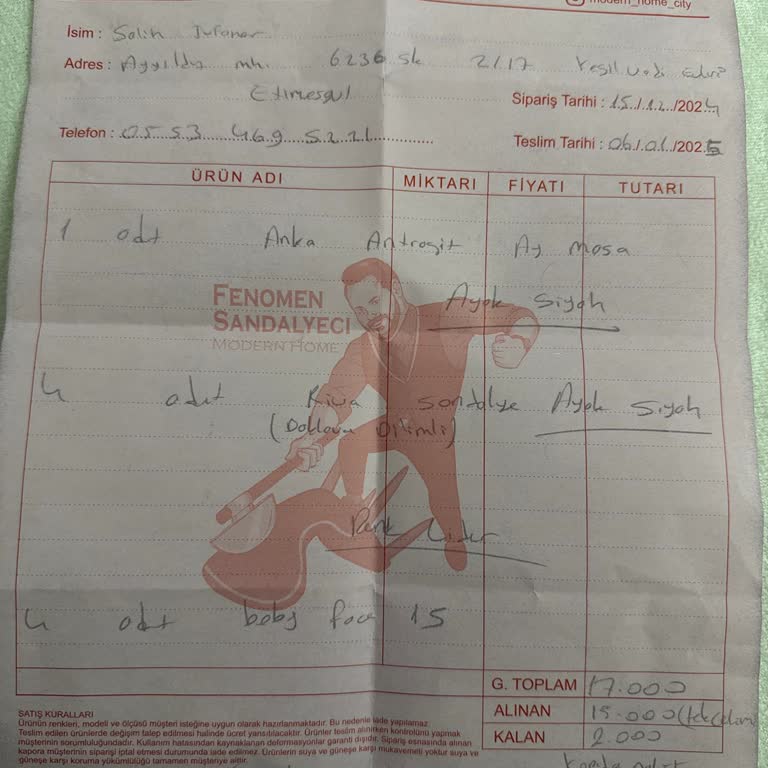 modern_home_city
İsim : Salih
Adres : Ayyıldız mh. 6236 sk 2/17 Yeşil vadi
Etimesgut
Sipariş Tarihi : 15./.12../2024
Telefon : 0553 469 5221
Teslim Tarihi : 06./.01./2025
ÜRÜN ADI MİKTARI FİYATI TUTARI
1 adt Anka Antrasit Ay masa
Ayak Siyah
FENOMEN
SANDALYECİ
MODERN HOME
4 adet sandalye Ayak Siyah
(Dilimli)
Renk
4 adt face 15
G. TOPLAM 17.000
ALINAN 15.000
KALAN 2.000
SATIŞ KURALLARI
Ürünün renkleri, modeli ve ölçüsü müşteri isteğine uygun olarak hazırlanmaktadır. Bu nedenle iade yapılamaz.
Teslim edilen ürünlerde değişim talep edilmesi halinde ücret yansıtılacaktır. Ürünler teslim alınırken kontrolünü yapmak
müşterinin sorumluluğundadır. Kullanım hatasından kaynaklanan deformasyonlar garanti dışıdır. Sipariş esnasında alınan
kapora müşterinin siparişi iptal etmesi durumunda iade edilmez. Ürünlerin suya ve güneşe karşı mukavemeti yoktur suya ve
güneşe karşı koruma yükümlülüğü tamamen müşteriye aittir.